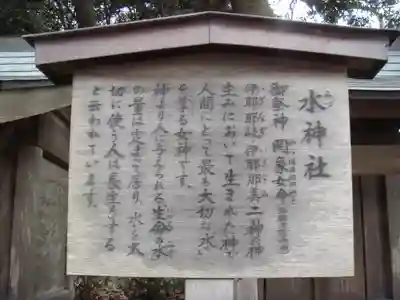 水神社
御祭神 罔象女命
伊耶那岐 伊耶那美二神の神
生みにおいて生まれた神で
人間にとって最も大切な水
を掌る女神です。
神より人に与えられる生命の水
の量は定まって居り、水を大
切に使う人は長生きする
と云われています。